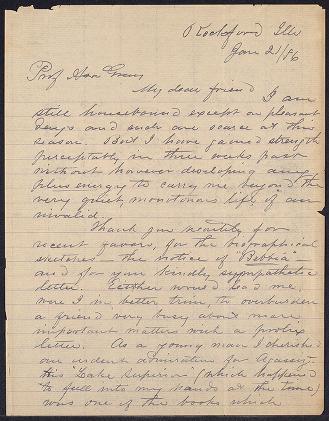 Rockford Ills
Jan 21/86
Prof Asa Gray
My dear friend I am
still housebound except on pleasant
days and such are scarce at this
season. But I have gained strength
perceptably in three weeks past
without however developing any
plus energy to carry me beyond the
very quiet, monotonous life of an
invalid.
Thank you heartily for
recent favors, for the biographical
sketches – the notice of "Bebbia" –
and for your kindly sympathetic
letter. Either would lead me,
were I in better trim, to overburden
a friend very busy about more
important matters with a prolix
letter. As a young man I cherished
an ardent admiration for Agassiz –
His "Lake Superior" (which happened
to fall into my hands at the time)
was one of the books which